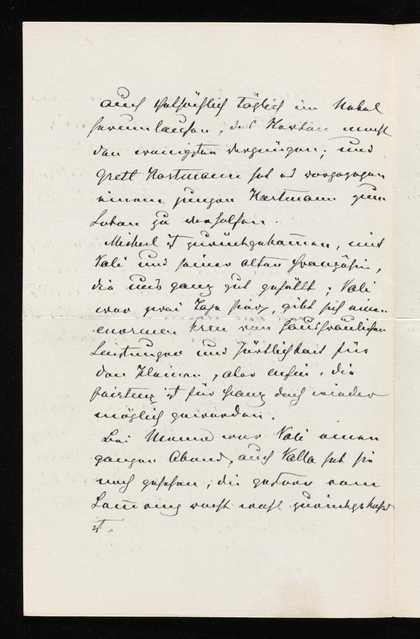 auch thatsächlich täglich im Nebel
herumlaufen; das Kartan macht
den wenigsten Vergnügen; und
Gretl Hartmann hat es vorgezogen
einem jungen Hartmann zum
Leben zu verhelfen.
Michel ist zurückgekommen, mit
Vali und seiner alten Französin,
die uns ganz gut gefällt; Vali
war zwei Tage hier, gibt sich einen
enormen Kren von hausfraulichen
Leistungen und Zärtlichkeit für
den Kleinen, aber enfin, die
ist für Franz doch wieder
möglich geworden.
Bei Mama war Vali einen
ganzen Abend, auch Valla hat sie
noch gesehen; die gestern vom
Semmering zurückgekehrt
ist.